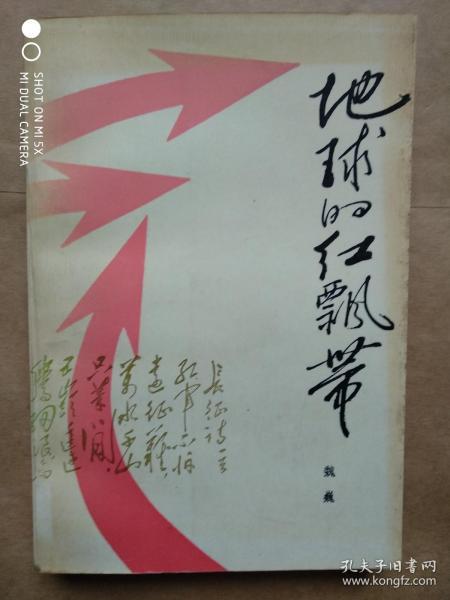 SHOT ON MI 5X
MI DUAL CAMERA
地球的红飘带
魏巍
长征诗一
红军不怕
远征难
万水千山
只等闲
五岭逶迤
腾细浪乌
孔夫子旧书网
www.kongfz.com